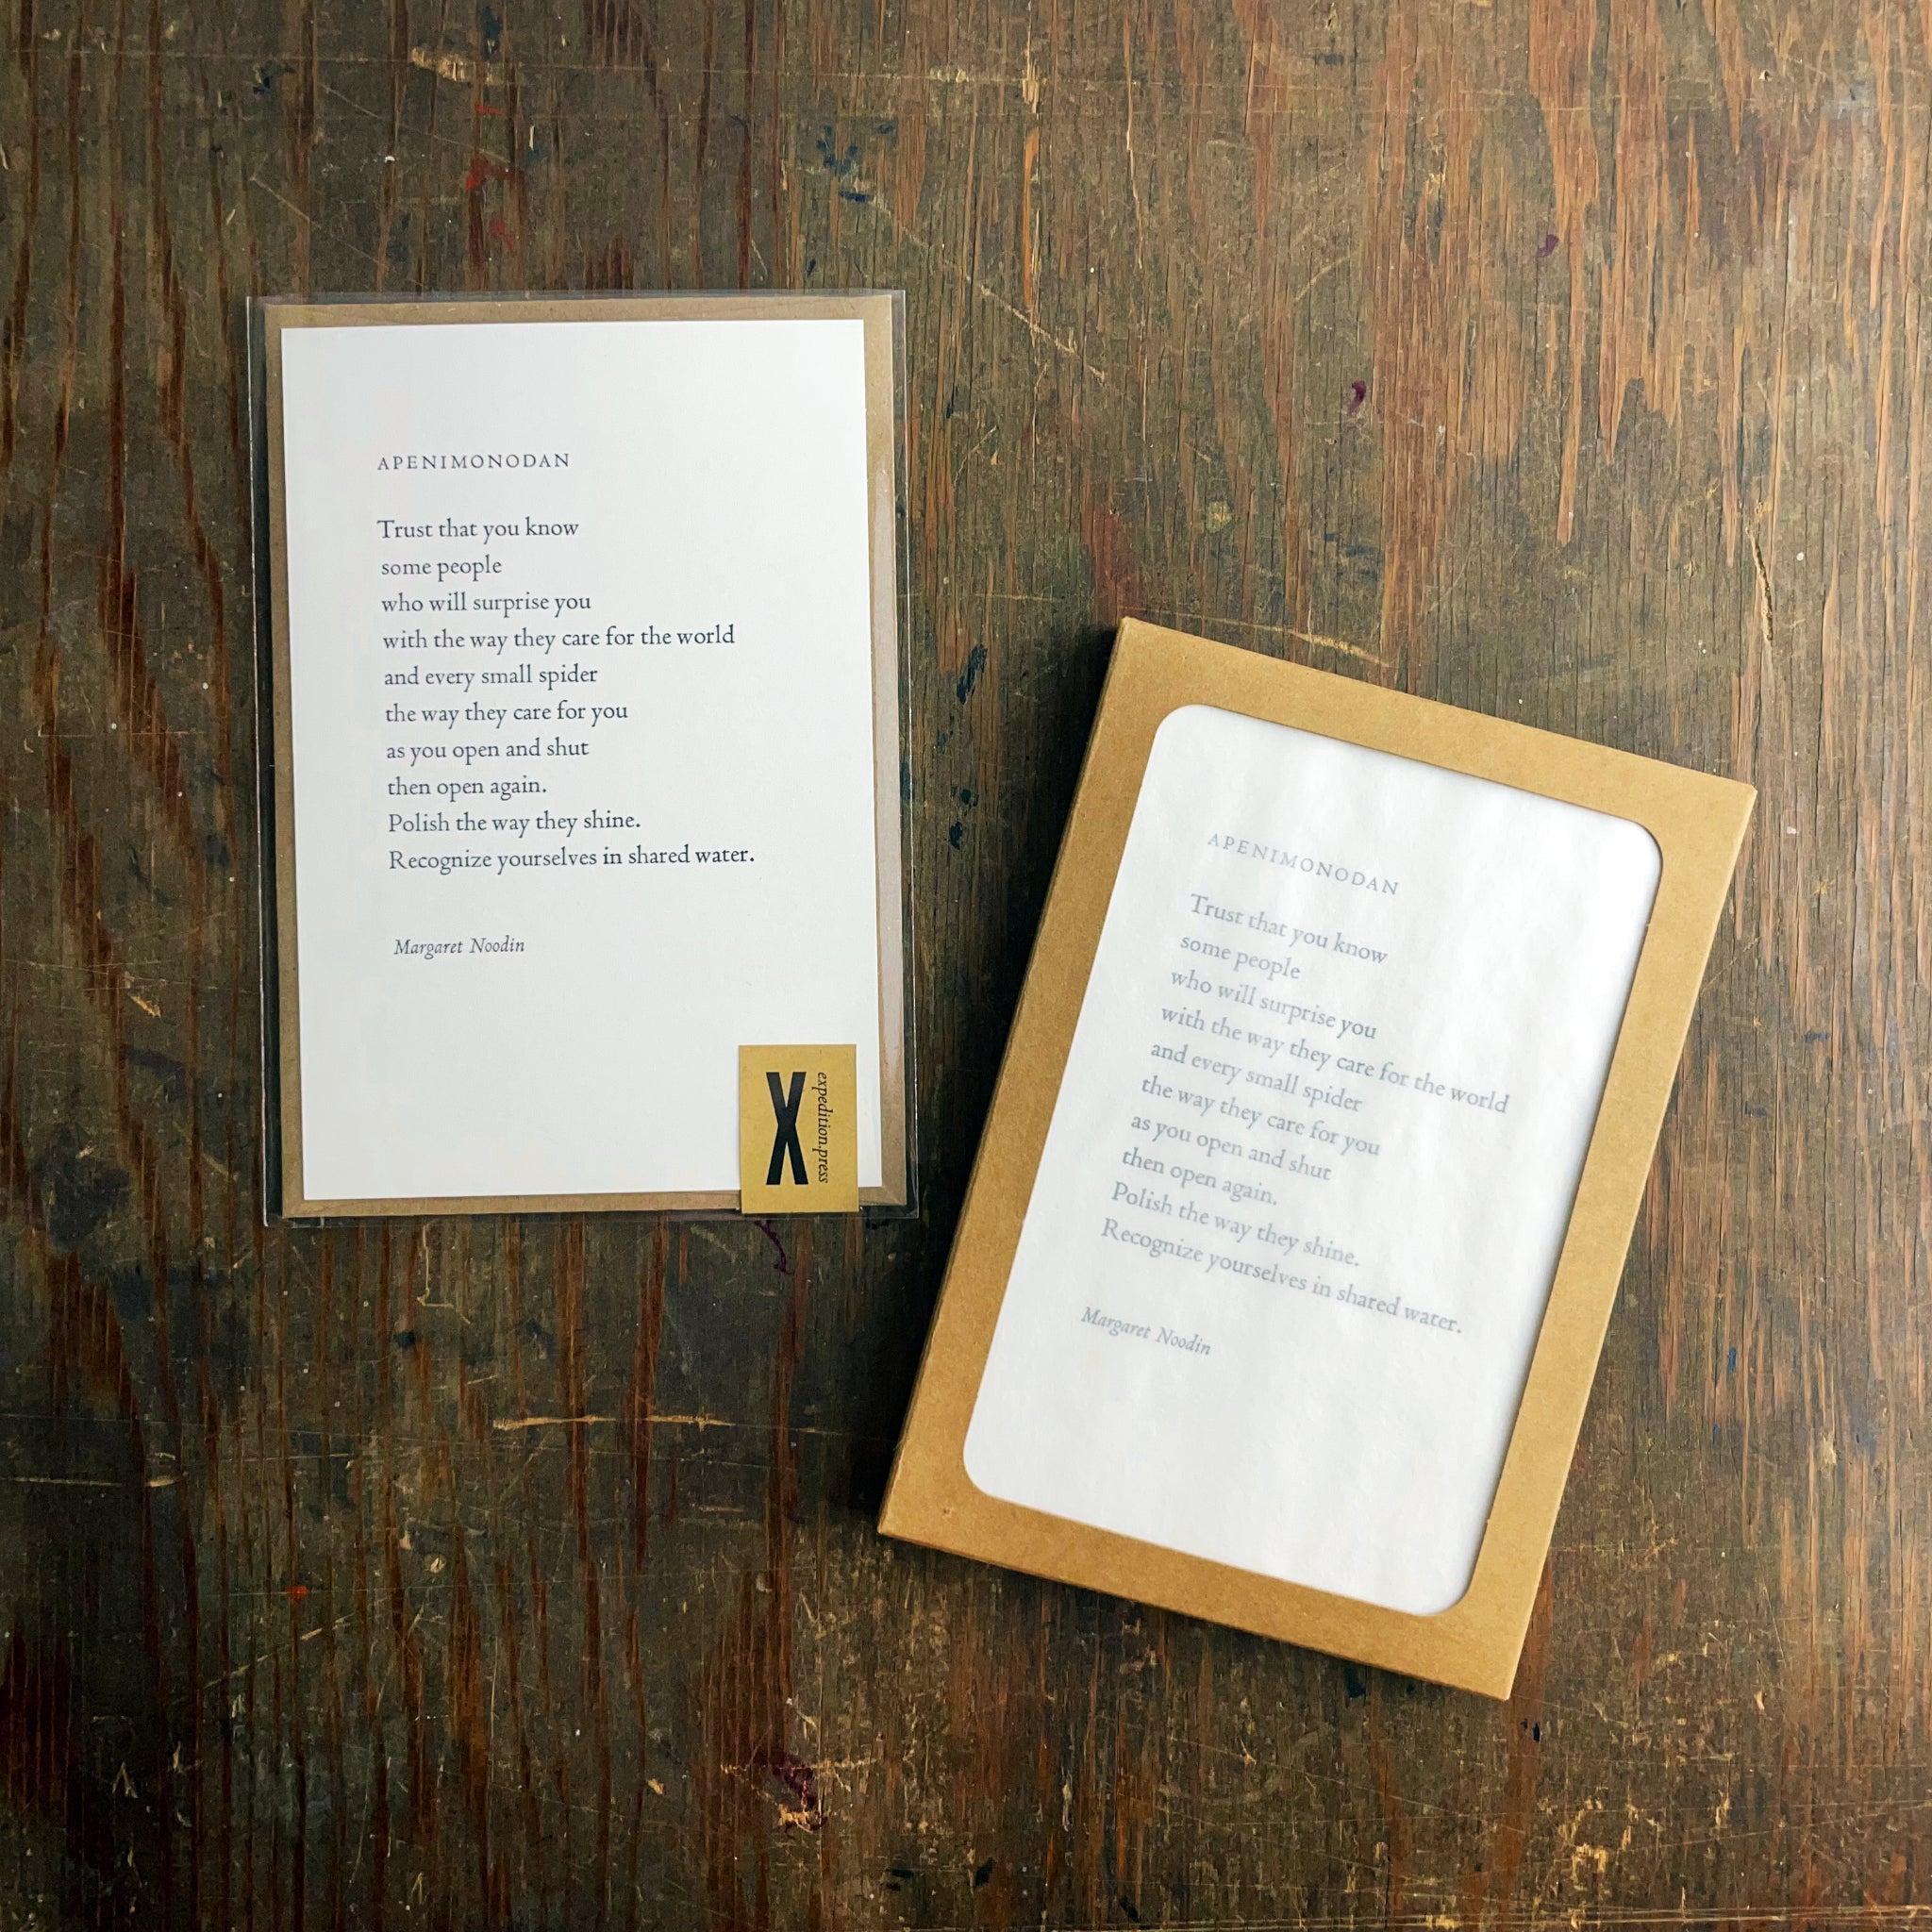 APENIMONODAN
Trust that you know
some people
who will surprise you
with the way they care for the world
and every small spider
the way they care for you
as you open and shut
then open again.
Polish the way they shine.
Recognize yourselves in shared water.
Margaret Noodin
X
expedition.press
APENIMONODAN
Trust that you know
some people
who will surprise you
with the way they care for the world
and every small spider
the way they care for you
as you open and shut
then open again.
Polish the way they shine.
Recognize yourselves in shared water.
Margaret Noodin